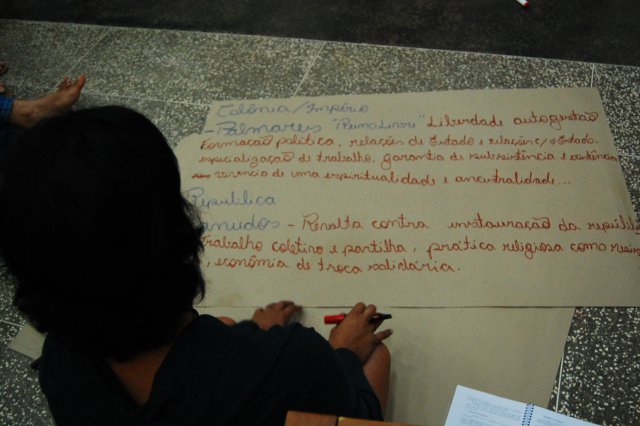 Colônia/Império
- Palmares "Reino Livre" Liberdade autogestão
Formação política, relações de Estado e relações c/ o Estado.
especialização de trabalho, garantia de subsistência e existência
vivencia de uma espiritualidade e ancestralidade...
República
anudos - Revolta contra instauração da repúbli
trabalho coletivo e partilha, prática religiosa como resis
, econômia de troca solidária.